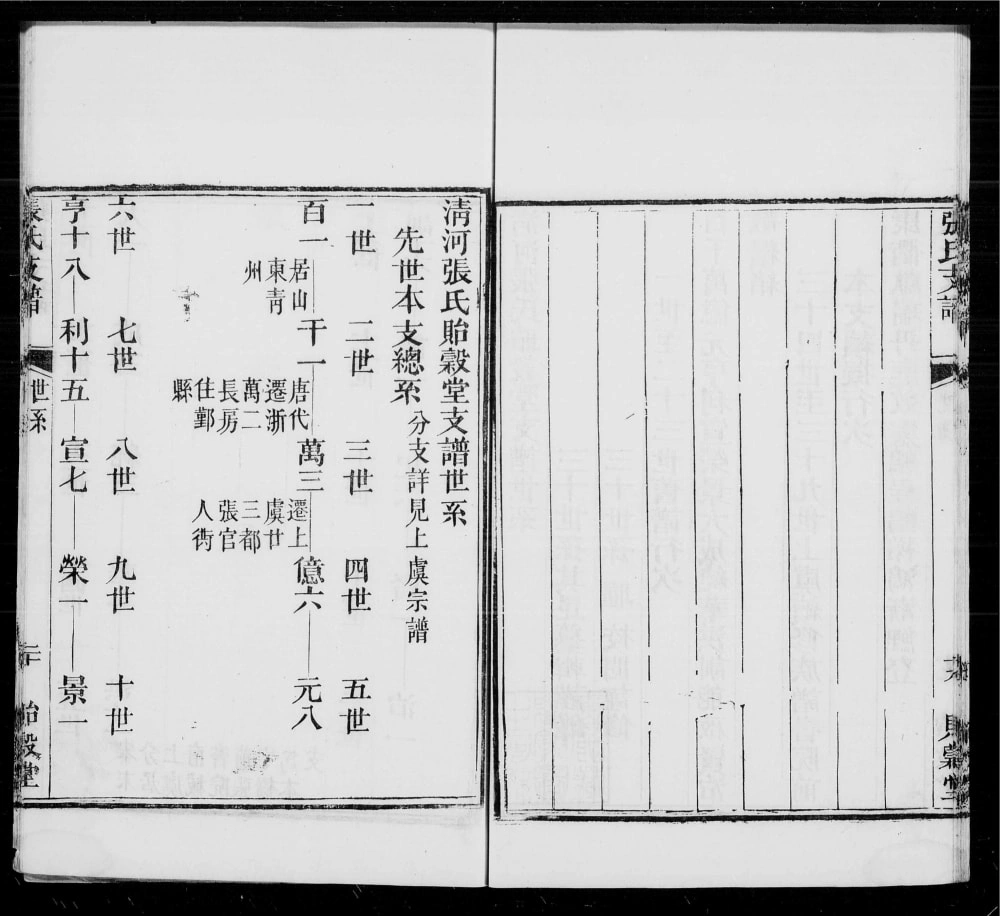 張氏支譜
貽穀堂
清河張氏貽穀堂支譜世系
先世本支總系 分支詳見上虞宗譜
一世 二世 三世 四世 五世
百一 居山東青州 千一 唐代遷浙萬二長房住鄞縣 萬三 遷上虞廿三都張官人衖 億六 元八
六世 七世 八世 九世 十世
亨十八 利十五 宣七 榮一 景一
張氏支譜 世系 二 貽穀堂